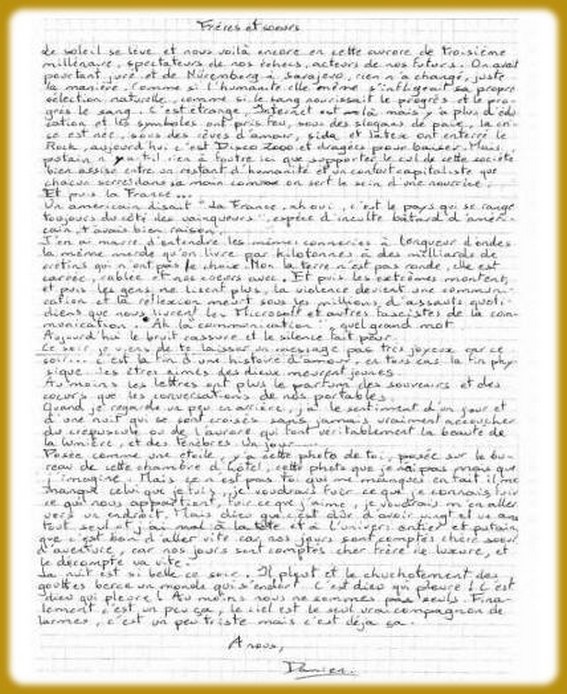 Frères et soeurs
Le soleil se lève et nous voilà encore en cette aurore de troisième
millénaire, spectateurs de nos échecs, acteurs de nos futurs. On avait
pourtant juré, et de Nüremberg à Sarajevo, rien n'a changé, juste
la manière. Comme si l'humanité elle même s'infligeait sa propre
sélection naturelle, comme si le sang nourissait le progrès et le pro-
grès le sang. C'est étrange, Internet est là mais y'a plus d'édu
cation et les symboles ont pris feu, sous des slogans de paix, la
ce est née, sous des rêves d'amour, sida et latex ont enterré le
Rock, aujourd'hui c'est Disco 2000 et dragées pour baiser. Mais,
putain n'y a t'il rien à foutre ici que supporter le cul de cette société
bien assise entre un restant d'humanité et un confort capitaliste que
chacun serre dans sa main comme on sert le sein d'une nourrice.
Et puis la France...
Un américain disait "la France, ah oui, c'est le pays qui se range
toujours du côté des vainqueurs", espèce d'inculte bâtard d'améri-
cain, t'avais bien raison.
J'en ai marre d'entendre les mêmes conneries à longueur d'ondes
la même merde qu'on livre par kilotonnes à des milliards de
crétins qui n'ont pas le choix. Non la terre n'est pas ronde, elle est
carrée, cablée et nos coeurs avec. Et puis les extrêmes montent,
et puis les gens ne lisent plus, la violence devient une communi-
cation et la réflexion meurt sous les millions d'assauts quoti-
diens que nous livrent les Microsoft et autres fascistes de la com-
munication. "Ah la communication", quel grand mot
Aujourd'hui le bruit rassure et le silence fait peur.
Ce soir je viens de te laisser un message pas très joyeux car ce
soir... c'est la fin d'une histoire d'amour, en tous cas la fin phy-
sique. Les êtres aimés des dieux meurent jeunes
Au moins les lettres ont plus le parfum des souvenirs et des
coeurs que les conversations de nos portables.
Quand je regarde un peu en arrière, j'ai le sentiment d'un jour et
d'une nuit qui se sont croisés sans jamais vraiment accoucher
du crépuscule ou de l'aurore qui font véritablement la beauté de
la lumière, et des ténèbres. Un jour......
Posée comme une étoile, y'a cette photo de toi, posée sur le bu-
reau de cette chambre d'hôtel, cette photo que je n'ai pas mais que
j'imagine. Mais ce n'est pas toi qui me manques en fait il me
manque celui que je fuis, je voudrais fuir ce que je connais, fuir
ce qui nous appartient, fuir ce que j'aime, je voudrais m'en aller
vers un endroit. Mais dieu que c'est dur d'avoir vingt et un ans
tout seul et j'ai mal à la tête et à l'univers entier et putain
que c'est bon d'aller vite car nos jours sont comptés chère soeur
d'aventure, car nos jours sont comptés cher frère de luxure, et
le décompte va vite.
La nuit est si belle ce soir. Il pleut et le chuchotement des
gouttes berce un monde qui s'endort. C'est dieu qui pleure ! C'est
dieu qui pleure ! Au moins nous ne sommes pas seuls. Fina-
lement c'est un peu ça, le ciel est le seul vrai compagnon de
larmes, c'est un peu triste mais c'est déjà ça.
A nous,
Damien.